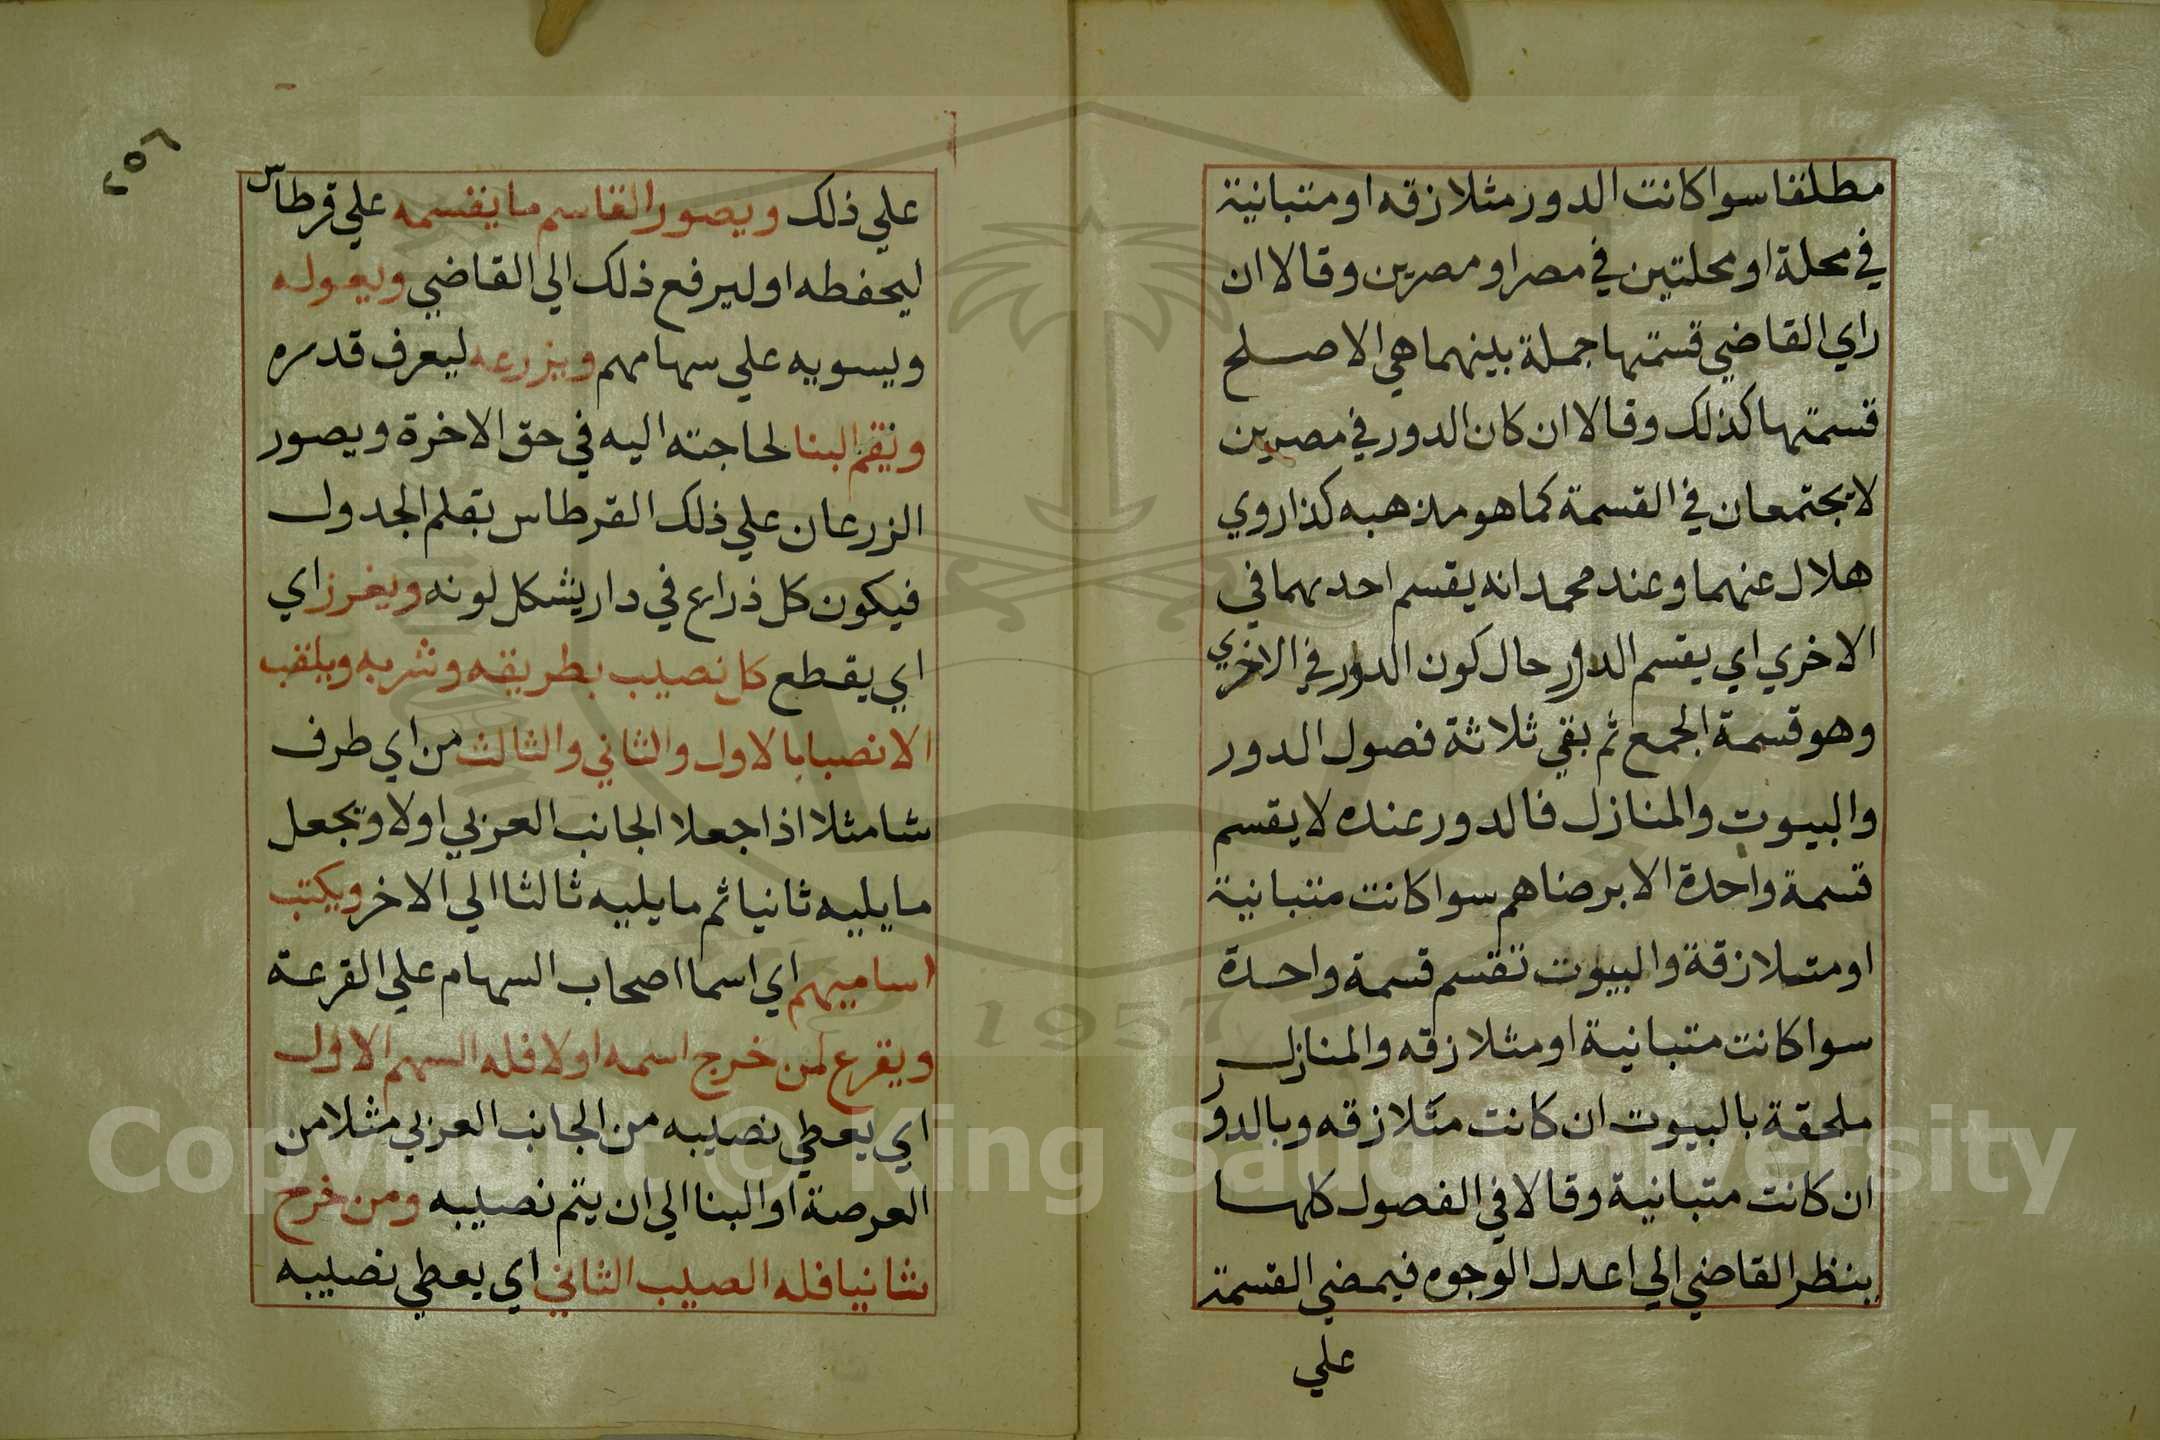 مطلقا سوا كانت الدور متلازقه او متبانية
في محلة او محلتين في مصر او مصرين وقالا ان
راي القاضي قسمتها جملة بينهما هي الاصلح
قسمتها كذلك وقالا ان كان الدور في مصرين
لا يجتمعان في القسمة كما هو مذهبه كذا روي
هلال عنهما وعند محمد انه يقسم احديهما في
الاخري اي يقسم الدور حال كون الدور في الاخري
وهو قسمة الجمع ثم بقي ثلاثة فصول الدور
والبيوت والمنازل فالدور عنده لا يقسم
قسمة واحدة الا برضاهم سوا كانت متبانية
او متلازقة والبيوت تقسم قسمة واحدة
سوا كانت متبانية او متلازقه والمنازل
ملحقة بالبيوت ان كانت متلازقه وبالدور
ان كانت متبانية وقالا في الفصول كلها
ينظر القاضي الي اعدل الوجوه فيمضي القسمة
علي
٢٥٦
علي ذلك ويصور القاسم ما يقسمه علي قرطاس
ليحفظه او ليرفع ذلك الي القاضي ويعوله
ويسويه علي سهامهم ويزرعه ليعرف قدره
ويقم البنا لحاجته اليه في حق الاخرة ويصور
الزرعان علي ذلك القرطاس بقلم الجدول
فيكون كل ذراع في دار يشكل لونه ويغرز اي
اي يقطع كل نصيب بطريقه وشربه ويلقب
الانصبا بالاول والثاني والثالث من اي طرف
شا مثلا اذا جعلا الجانب العزبي اولا ويجعل
ما يليه ثانيا ثم ما يليه ثالثا الي الاخر ويكتب
اساميهم اي اسما اصحاب السهام علي القرعة
ويقرع لمن خرج اسمه اولا فله السهم الاول
اي يعطي نصيبه من الجانب العزبي مثلا من
العرصة او البنا الي ان يتم نصيبه ومن خرج
ثانيا فله الصيب الثاني اي يعطي نصيبه
1957
Copyright © King Saud University